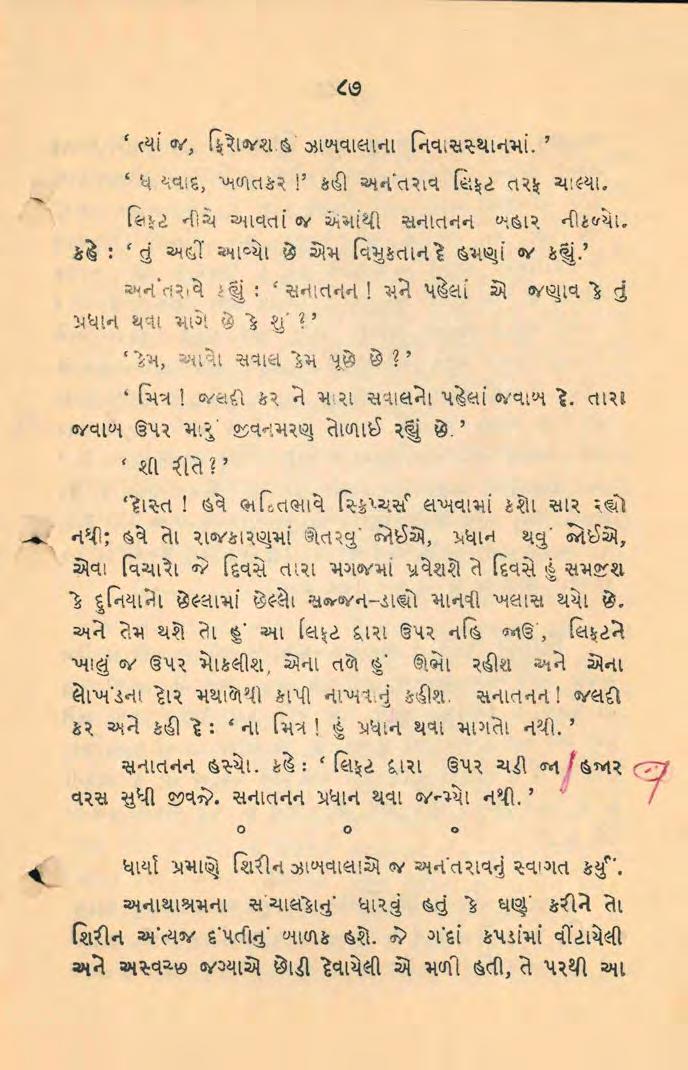 ૮૭
‘ ત્યાં જ, ફિરોજશાહ ઝાબવાલાના નિવાસસ્થાનમાં. ’
‘ ધન્યવાદ, ખળતકર !’ કહી અનંતરાવ લિફ્ટ તરફ ચાલ્યા.
લિફ્ટ નીચે આવતાં જ એમાંથી સનાતનન બહાર નીકળ્યો.
કહે : ‘ તું અહીં આવ્યો છે એમ વિમુકતાનંદે હમણાં જ કહ્યું.’
અનંતરાવે કહ્યું : ‘ સનાતનન ! મને પહેલાં એ જણાવ કે તું
પ્રધાન થવા માગે છે કે શું ?’
‘ કેમ, આવો સવાલ કેમ પૂછે છે ?’
‘ મિત્ર ! જલદી કર ને મારા સવાલનો પહેલાં જવાબ દે. તારા
જવાબ ઉપર મારું જીવનમરણ તોળાઈ રહ્યું છે.’
‘ શી રીતે ?’
‘દોસ્ત ! હવે ભક્તિભાવે સ્ક્રિપ્ચર્સ લખવામાં કશો સાર રહ્યો
નથી; હવે તો રાજકારણમાં ઊતરવું જોઈએ, પ્રધાન થવું જોઈએ,
એવા વિચારો જે દિવસે તારા મગજમાં પ્રવેશશે તે દિવસે હું સમજીશ
કે દુનિયાનો છેલ્લામાં છેલ્લો સજ્જન-ડાહ્યો માનવી ખલાસ થયો છે.
અને તેમ થશે તો હું આ લિફ્ટ દ્વારા ઉપર નહિ જાઉં, લિફ્ટને
ખાલું જ ઉપર મોકલીશ, એના તળે હું ઊભો રહીશ અને એના
લોખંડના દોર મથાળેથી કાપી નાખવાનું કહીશ. સનાતનન ! જલદી
કર અને કહી દે : ‘ ના મિત્ર ! હું પ્રધાન થવા માગતો નથી. ’
સનાતનન હસ્યો. કહે : ‘ લિફ્ટ દ્વારા ઉપર ચડી જા હજાર
વરસ સુધી જીવજે. સનાતનન પ્રધાન થવા જન્મ્યો નથી. ’
૦ ૦ ૦
ધાર્યા પ્રમાણે શિરીન ઝાબવાલાએ જ અનંતરાવનું સ્વાગત કર્યું.
અનાથાશ્રમના સંચાલકોનું ધારવું હતું કે ઘણું કરીને તો
શિરીન અંત્યજ દંપતીનું બાળક હશે. જે ગંદાં કપડાંમાં વીંટાયેલી
અને અસ્વચ્છ જગ્યાએ છોડી દેવાયેલી એ મળી હતી, તે પરથી આ